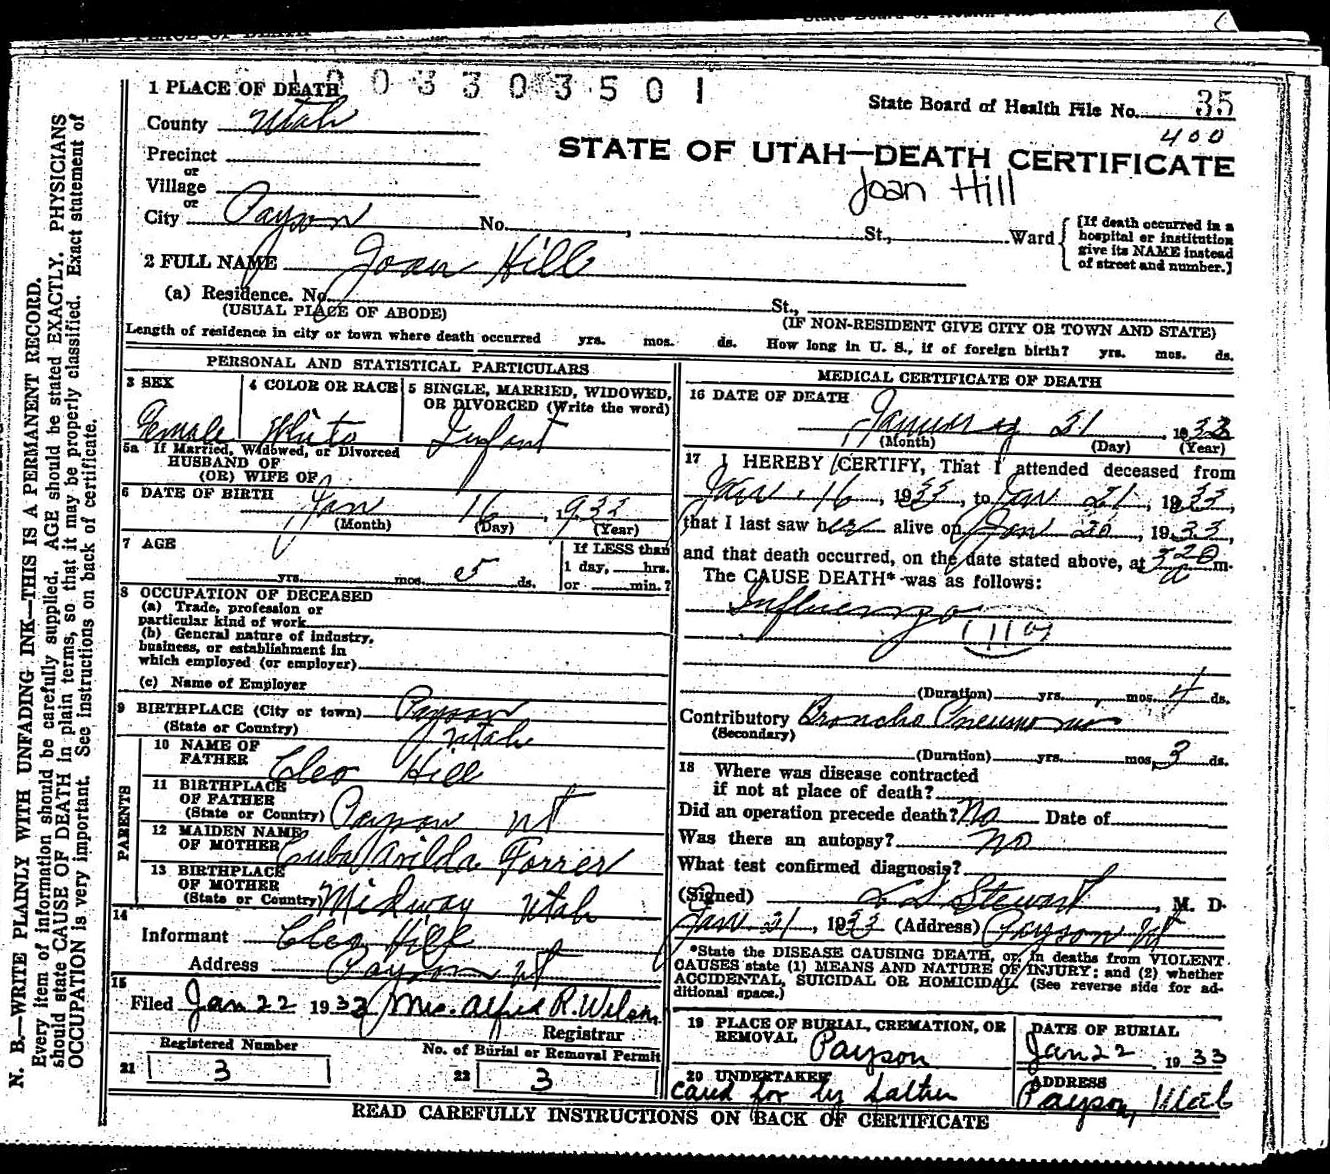 1 PLACE OF DEATH
0 3 3 0 3 5 0 1
State Board of Health File No. 35
400
County Utah
STATE OF UTAH—DEATH CERTIFICATE
Joan Hill
Precinct
or
Village
or
City Payson No. , St., Ward
[If death occurred in a
hospital or institution
give its NAME instead
of street and number.]
2 FULL NAME Joan Hill
(a) Residence. No. St.,
(USUAL PLACE OF ABODE)
(IF NON-RESIDENT GIVE CITY OR TOWN AND STATE)
Length of residence in city or town where death occurred yrs. mos. ds. How long in U. S., if of foreign birth? yrs. mos. ds.
PERSONAL AND STATISTICAL PARTICULARS
3 SEX
Female
4 COLOR OR RACE
White
5 SINGLE, MARRIED, WIDOWED,
OR DIVORCED (Write the word)
Infant
5a If Married, Widowed, or Divorced
HUSBAND OF
(OR) WIFE OF
6 DATE OF BIRTH
Jan 16, 1933
(Month) (Day) (Year)
7 AGE
yrs. mos. 5 ds.
If LESS than
1 day, hrs.
or min.?
8 OCCUPATION OF DECEASED
(a) Trade, profession or
particular kind of work
(b) General nature of industry,
business, or establishment in
which employed (or employer)
(c) Name of Employer
9 BIRTHPLACE (City or town) Payson
(State or Country) Utah
PARENTS
10 NAME OF
FATHER Cleo Hill
11 BIRTHPLACE
OF FATHER
(State or Country) Payson Ut
12 MAIDEN NAME
OF MOTHER Cuba Arilda Forrer
13 BIRTHPLACE
OF MOTHER
(State or Country) Midway Utah
14
Informant Cleo Hill
Address Payson Ut
15
Filed Jan 22 1933 Mrs. Alfred R. Wilson
Registrar
Registered Number
21 3
No. of Burial or Removal Permit
22 3
MEDICAL CERTIFICATE OF DEATH
16 DATE OF DEATH
January 21, 1933
(Month) (Day) (Year)
17 I HEREBY CERTIFY, That I attended deceased from
Jan. 16, 1933, to Jan 21, 1933,
that I last saw her alive on Jan 20, 1933,
and that death occurred, on the date stated above, at 320 a m.
The CAUSE DEATH* was as follows:
Influenza
(Duration) yrs. mos. 4 ds.
Contributory Broncho Pneumonia
(Secondary)
(Duration) yrs. mos. 3 ds.
18 Where was disease contracted
if not at place of death?
Did an operation precede death? No Date of
Was there an autopsy? No
What test confirmed diagnosis?
(Signed) L D Stewart, M. D.
Jan 21, 1933 (Address) Payson Ut
*State the DISEASE CAUSING DEATH, or, in deaths from VIOLENT
CAUSES state (1) MEANS AND NATURE OF INJURY; and (2) whether
ACCIDENTAL, SUICIDAL OR HOMICIDAL. (See reverse side for ad-
ditional space.)
19 PLACE OF BURIAL, CREMATION, OR
REMOVAL Payson
DATE OF BURIAL
Jan 22, 1933
20 UNDERTAKER
cared for by father
ADDRESS
Payson, Utah
READ CAREFULLY INSTRUCTIONS ON BACK OF CERTIFICATE
N. B.—WRITE PLAINLY WITH UNFADING INK—THIS IS A PERMANENT RECORD.
Every item of information should be carefully supplied. AGE should be stated EXACTLY. PHYSICIANS
should state CAUSE OF DEATH in plain terms, so that it may be properly classified. Exact statement of
OCCUPATION is very important. See instructions on back of certificate.